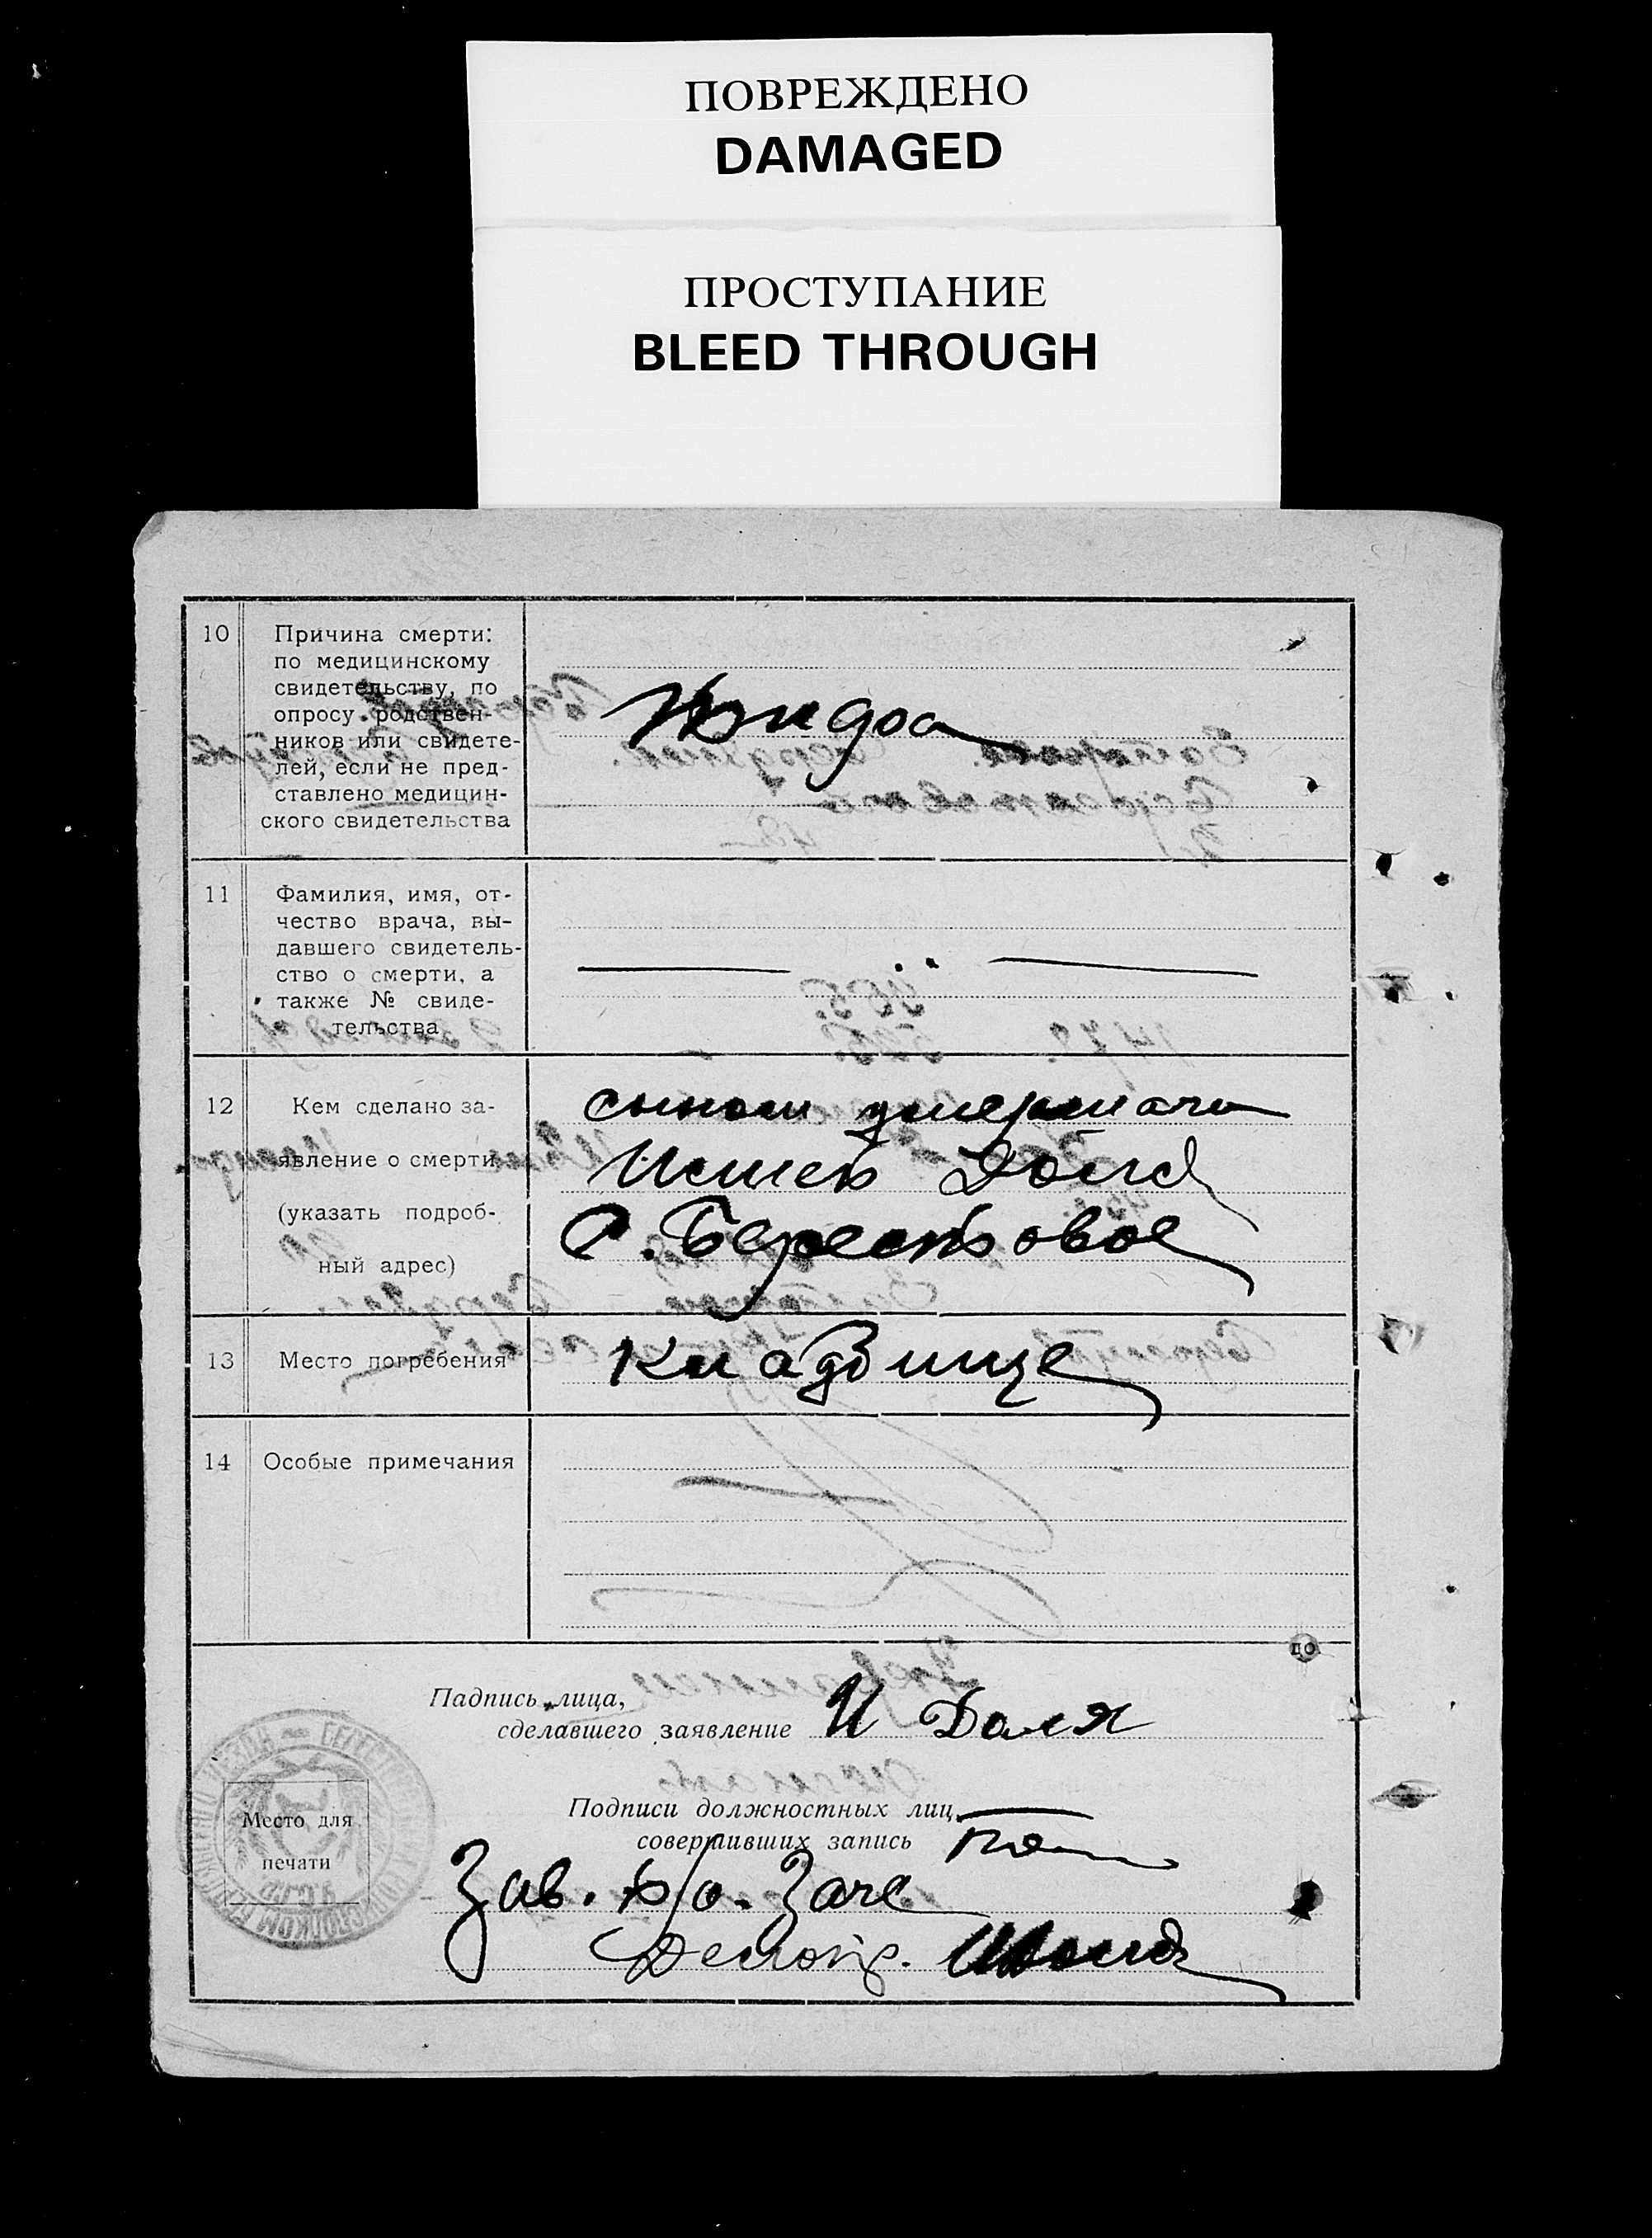 ПОВРЕЖДЕНО
DAMAGED
ПРОСТУПАНИЕ
BLEED THROUGH
10
Причина смерти:
по медицинскому
свидетельству, по
опросу родствен-
ников или свидете-
лей, если не пред-
ставлено медицин-
ского свидетельства
11
Фамилия, имя, от-
чество врача, вы-
давшего свидетель-
ство о смерти, а
также № свиде-
тельства
12
Кем сделано за-
явление о смерти
(указать подроб-
ный адрес)
сыном умершаго
С. Берестовое
13
Место погребения
Кладбище
14
Особые примечания
Падпись лица,
сделавшего заявление И Доля
Место для
печати
Подписи должностных лиц,
совершивших запись
Зав.